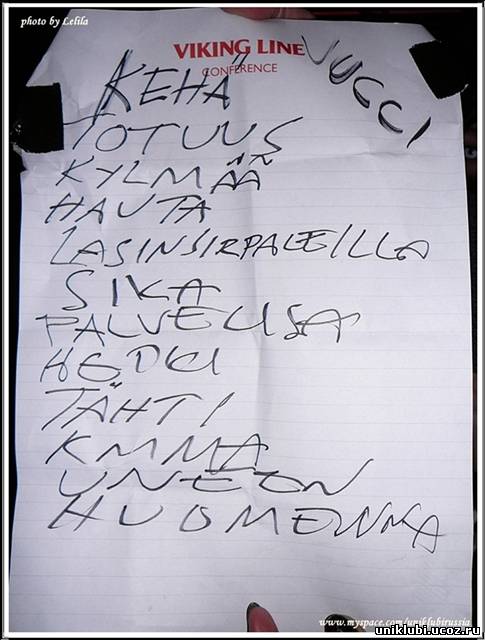 photo by Lelila
VIKING LINE
CONFERENCE
JUCCI
KEHÄ
TOTUUS
KYLMÄÄ
HAUTA
LASINSIRPALEILLA
SIKA
TÄHTI
KMMA
UNEEN
HUOMENNA
www.myspace.com/uniklubirussia
uniklubi.ucoz.ru